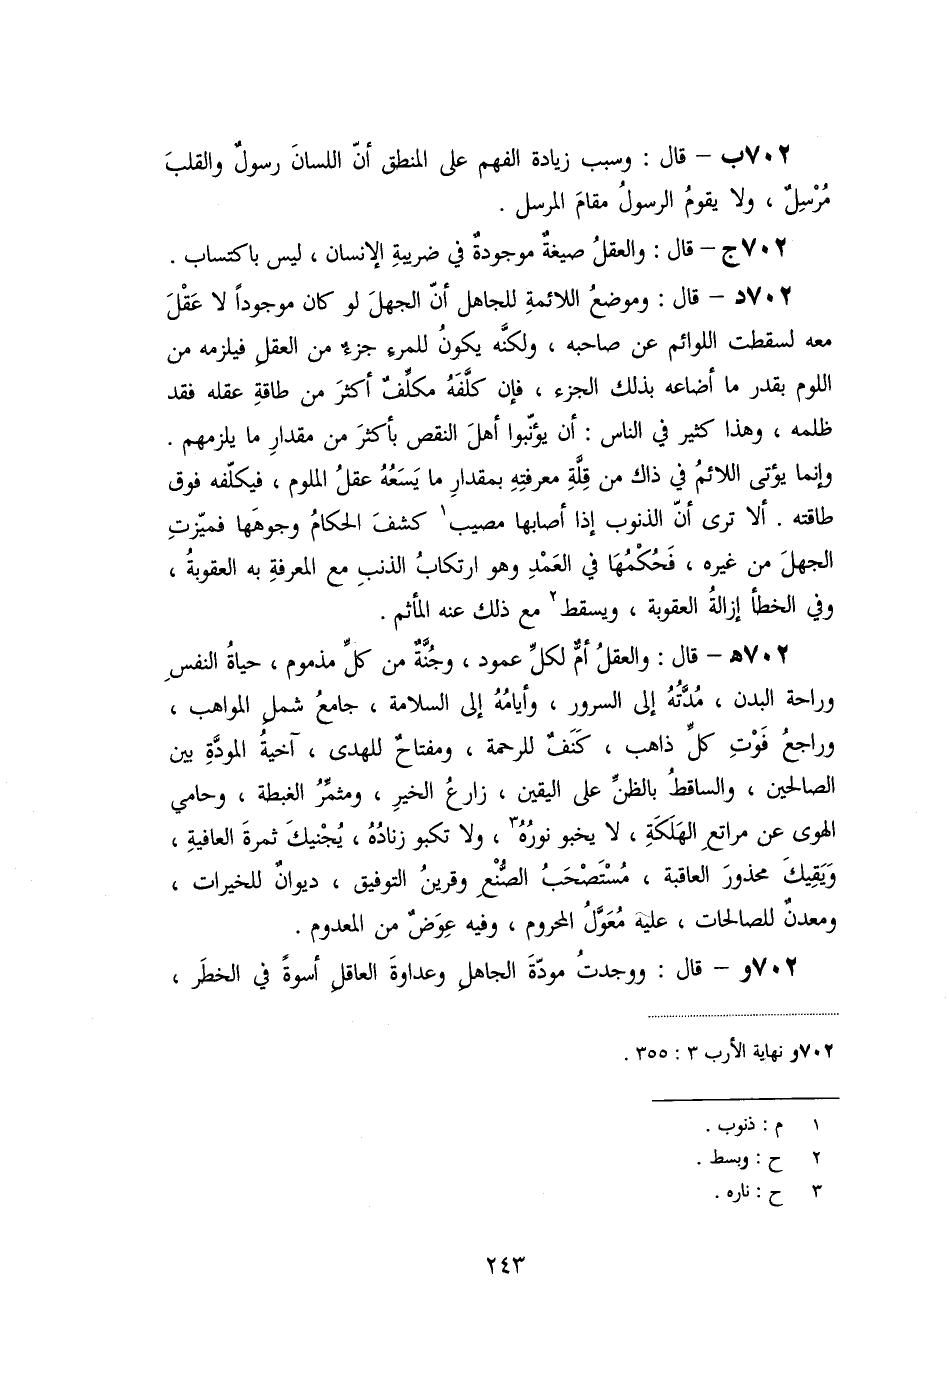 ٧٠٢ب – قال : وسبب زيادة الفهم على المنطق أنّ اللسانَ رسولٌ والقلبَ
مُرْسِلٌ ، ولا يقومُ الرسولُ مقامَ المرسل .
٧٠٢ج – قال : والعقلُ صيغةٌ موجودةٌ في ضريبةِ الإنسان ، ليس باكتساب .
٧٠٢د – قال : وموضعُ اللائمةِ للجاهل أنّ الجهلَ لو كان موجوداً لا عَقْلَ
معه لسقطت اللوائم عن صاحبه ، ولكنَّه يكونُ للمرءِ جزءٌ من العقلِ فيلزمه من
اللوم بقدر ما أضاعه بذلك الجزء ، فإن كلَّفَهُ مكلِّفٌ أكثرَ من طاقةِ عقله فقد
ظلمه ، وهذا كثير في الناس : أن يؤنّبوا أهلَ النقص بأكثرَ من مقدارِ ما يلزمهم .
وإنما يؤتى اللائمُ في ذاك من قِلَّةِ معرفتِهِ بمقدارِ ما يَسَعُهُ عقلُ الملوم ، فيكلّفه فوق
طاقته . ألا ترى أنّ الذنوب إذا أصابها مصيب١ كشفَ الحكامُ وجوهَها فميّزتِ
الجهلَ من غيره ، فَحُكْمُهَا في العَمْدِ وهو ارتكابُ الذنبِ مع المعرفةِ به العقوبةُ ،
وفي الخطأ إزالةُ العقوبة ، ويسقط٢ مع ذلك عنه المأثم .
٧٠٢هـ – قال : والعقلُ أمٌّ لكلِّ عمود ، وجُنَّةٌ من كلِّ مذموم ، حياةُ النفسِ
وراحة البدن ، مُدَّتُهُ إلى السرور ، وأيامُهُ إلى السلامة ، جامعُ شملِ المواهب ،
وراجعُ فَوْتِ كلِّ ذاهب ، كَنَفٌ للرحمة ، ومفتاحٌ للهدى ، آخيةُ المودَّةِ بين
الصالحين ، والساقطُ بالظنِّ على اليقين ، زارعُ الخيرِ ، ومثمِّرُ الغبطة ، وحامي
الهوى عن مراتعِ الهَلَكَةِ ، لا يخبو نورُهُ٣ ، ولا تكبو زنادُهُ ، يُجْنيكَ ثمرةَ العافيةِ ،
وَيَقِيكَ محذورَ العاقبة ، مُسْتَصْحَبُ الصُّنْعِ وقرينُ التوفيق ، ديوانٌ للخيرات ،
ومعدنٌ للصالحات ، عليه مُعَوَّلُ المحروم ، وفيه عِوَضٌ من المعدوم .
٧٠٢و – قال : ووجدتُ مودّةَ الجاهلِ وعداوةَ العاقلِ أسوةً في الخطَر ،
٧٠٢و نهاية الأرب ٣ : ٣٥٥ .
١ م : ذنوب .
٢ ح : وبسط .
٣ ح : ناره .
٢٤٣